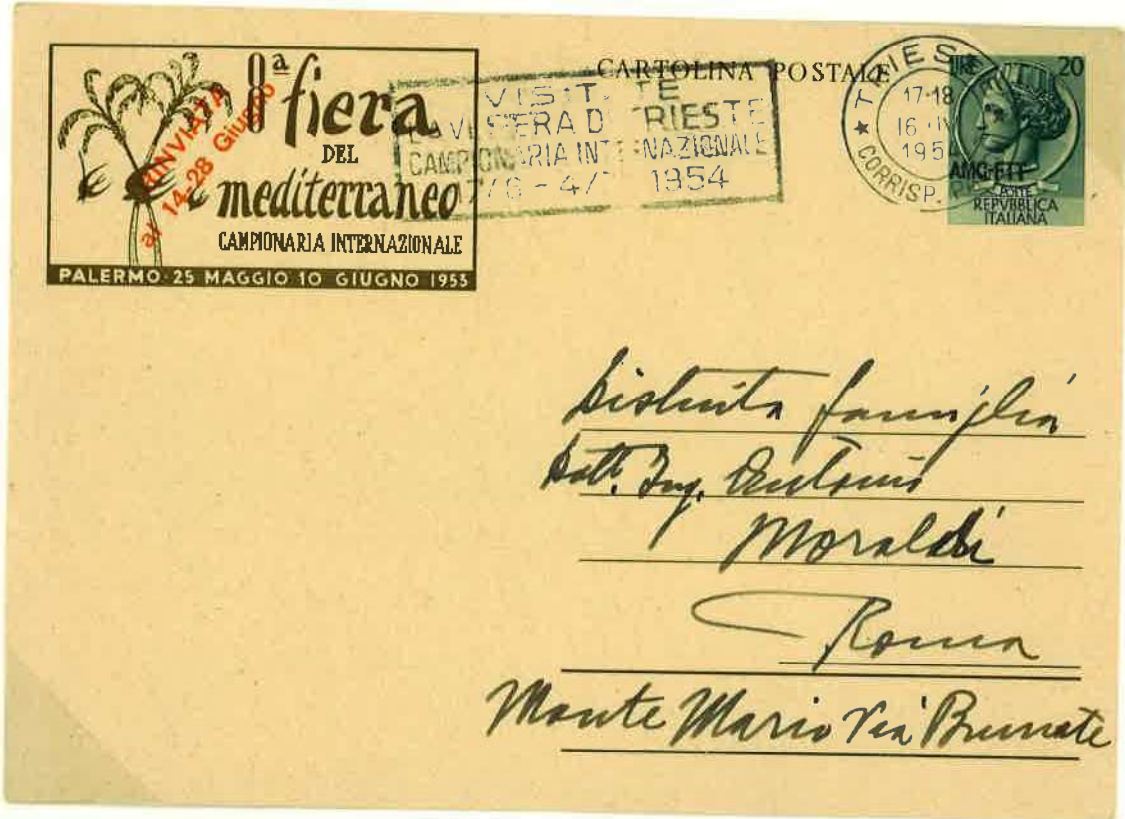 8ª fiera
DEL
mediterraneo
CAMPIONARIA INTERNAZIONALE
PALERMO · 25 MAGGIO 10 GIUGNO 1953
RINVIATA
al 14-28 Giugno
CARTOLINA POSTALE
VISIT TE
LA VI FIERA DI TRIESTE
CAMPIONARIA INTERNAZIONALE
1954
TRIES
17-18
16 IV
195
CORRISP.
LIRE 20
AMG-FTT
POSTE
REPVBBLICA
ITALIANA
Distinta famiglia
Dott. Ing. Antonio
Moraldi
Roma
Monte Mario Via Brunate